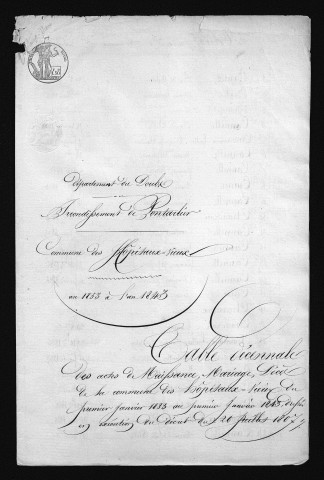 Département du Doubs
Arrondissement de Pontarlier
Commune des Hôpitaux-vieux
an 1833 à l'an 1843
Table Décennale
des actes de Naissance, Mariage, Décès
de la commune des hôpitaux-vieux du
premier janvier 1833 au premier janvier 1843
en exécution du décret du 20 Juillet 1807